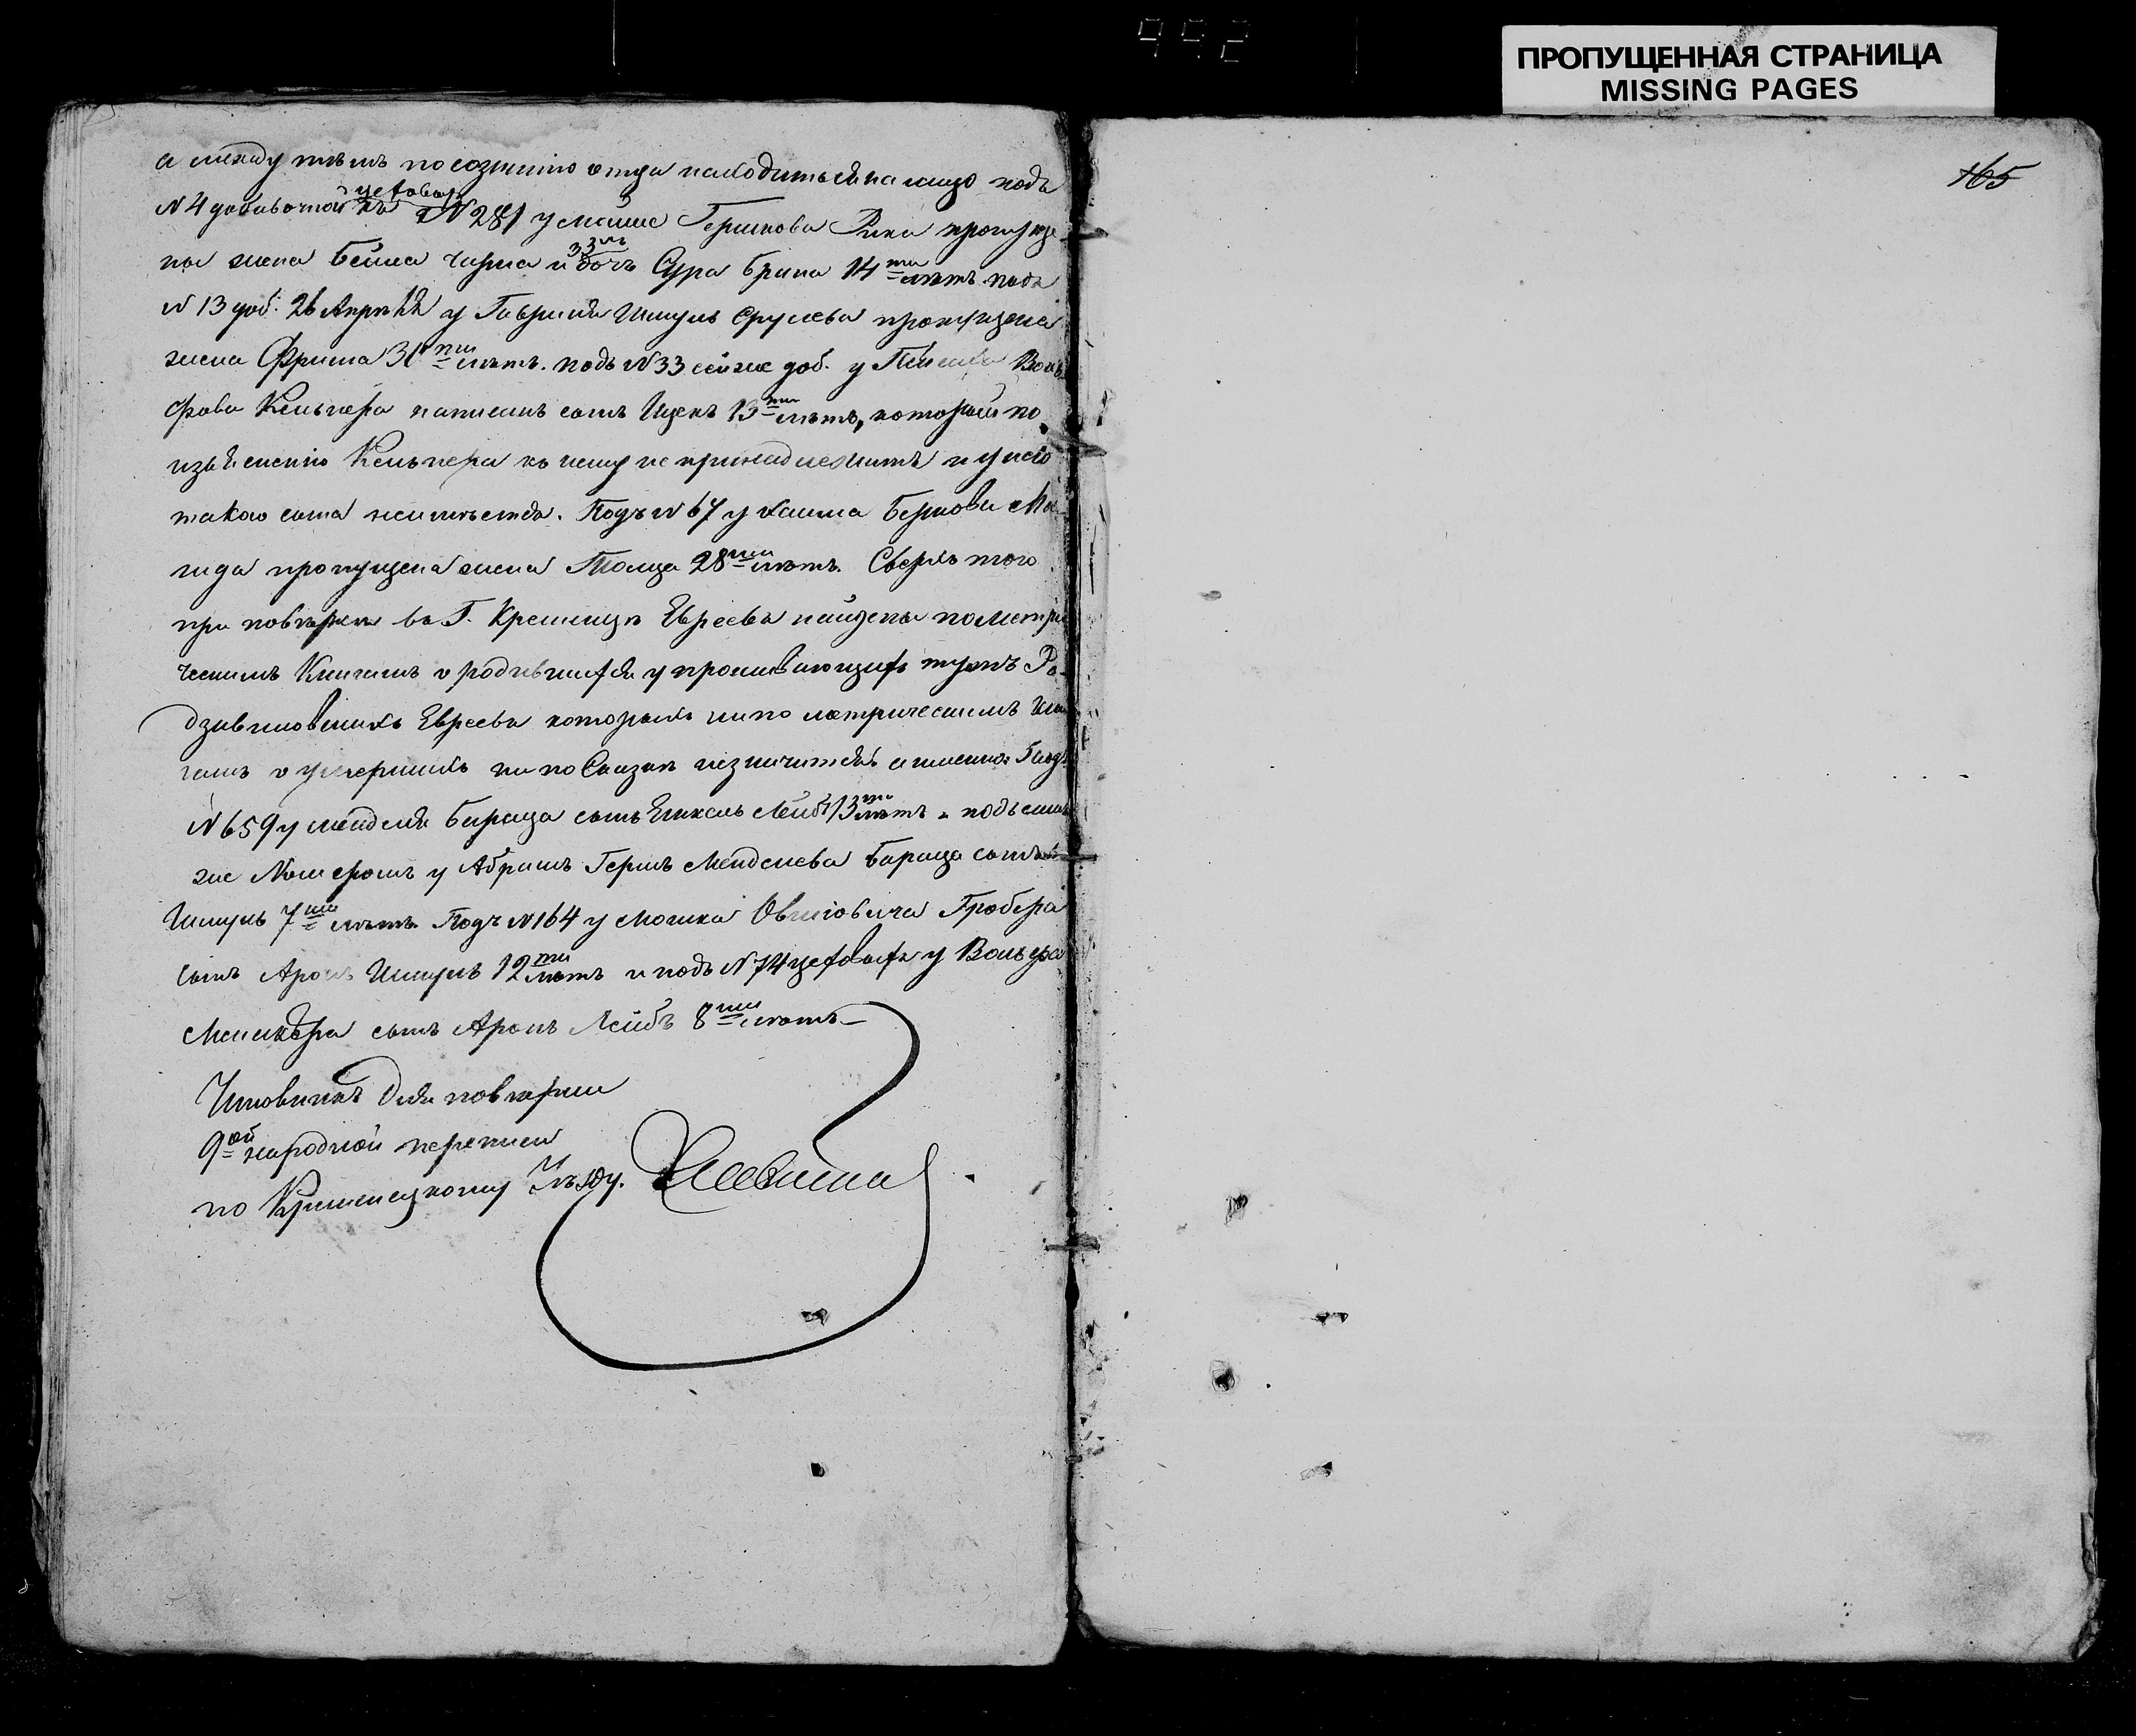 992
ПРОПУЩЕННАЯ СТРАНИЦА
MISSING PAGES
165
а между тѣмъ по сознанію отца находиться на лицо подъ
N 4 добавочной къ цеховой N 281 у Мошка Гершкова Рика пропуще
ны жена Бейла Чарна 33 лѣ и дочь Сура Брана 14ти лѣтъ подъ
N 13 доб. 26 Апрѣля у Гавриля Шмуль Срулева пропущена
жена Фрима 30ти лѣтъ. подъ N 33 сей же доб. у Воль
фова Кельнера написанъ сынъ Ицекъ 13ти лѣтъ, который по
изъясненію Кельнера къ нему не принадлежитъ и у него
такого сына не имѣется. Подъ N 67 у Хаима Беркова Ма
гида пропущена жена 28ми лѣтъ. Сверхъ того
при повѣркѣ въ Г. Кременцѣ Евреевъ найдены по Метри
ческимъ Книгамъ о родившихся у проживающихъ тутъ Ра
дзивиловскихъ Евреевъ которыхъ ни по метрическимъ Кни
гамъ о умершихъ ни по Сказкѣ не значится, а именно: подъ
N 659 у Менделя Бараца сынъ Лейбъ 13ти лѣтъ подъ симъ
же Номеромъ у Абрамъ Гершъ Менделева Бараца сынъ
Шмуль 7ми лѣтъ. Подъ N 164 у Мошка Овшіовича Гробера
сынъ Аронъ Шмуль 12ти лѣтъ и подъ N 74 цеховыхъ у Вольфа
сынъ Аронъ Лейбъ 8ми лѣтъ
Чиновникъ для повѣрки
9ой народной переписи
по Кременецкому Уѣзду.